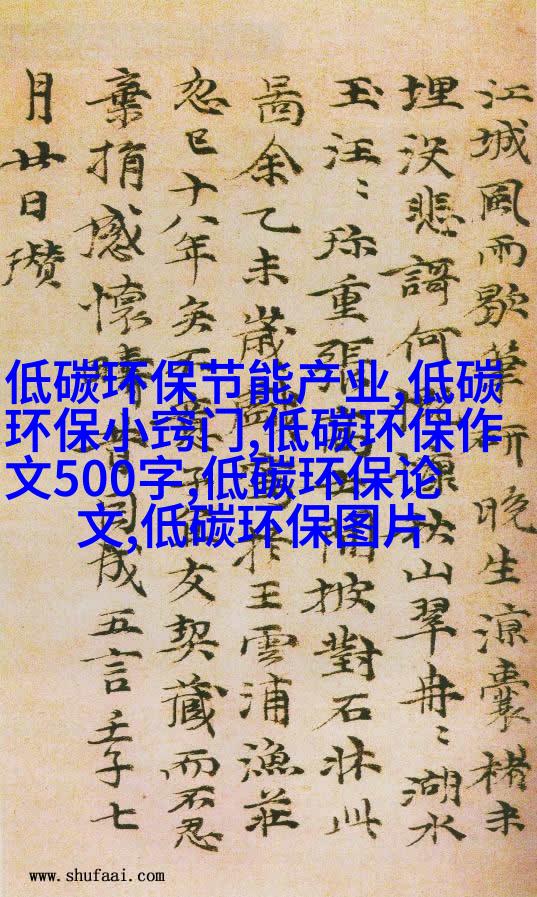 江城風雨歇筆研晚生涼囊楮未
埋沒悲謌何秋山翠冉〻湖水
玉汪〻珎重張閒披對石牀此
啚余乙未歲戲於王雲浦漁莊
忽已十八年矣不子友契藏而不忍
棄捐感懷因成五言壬子七
月廿日瓚
低碳环保节能产业,低碳
环保小窍门,低碳环保作
文500字,低碳环保论
文,低碳环保图片
www.shufaai.com